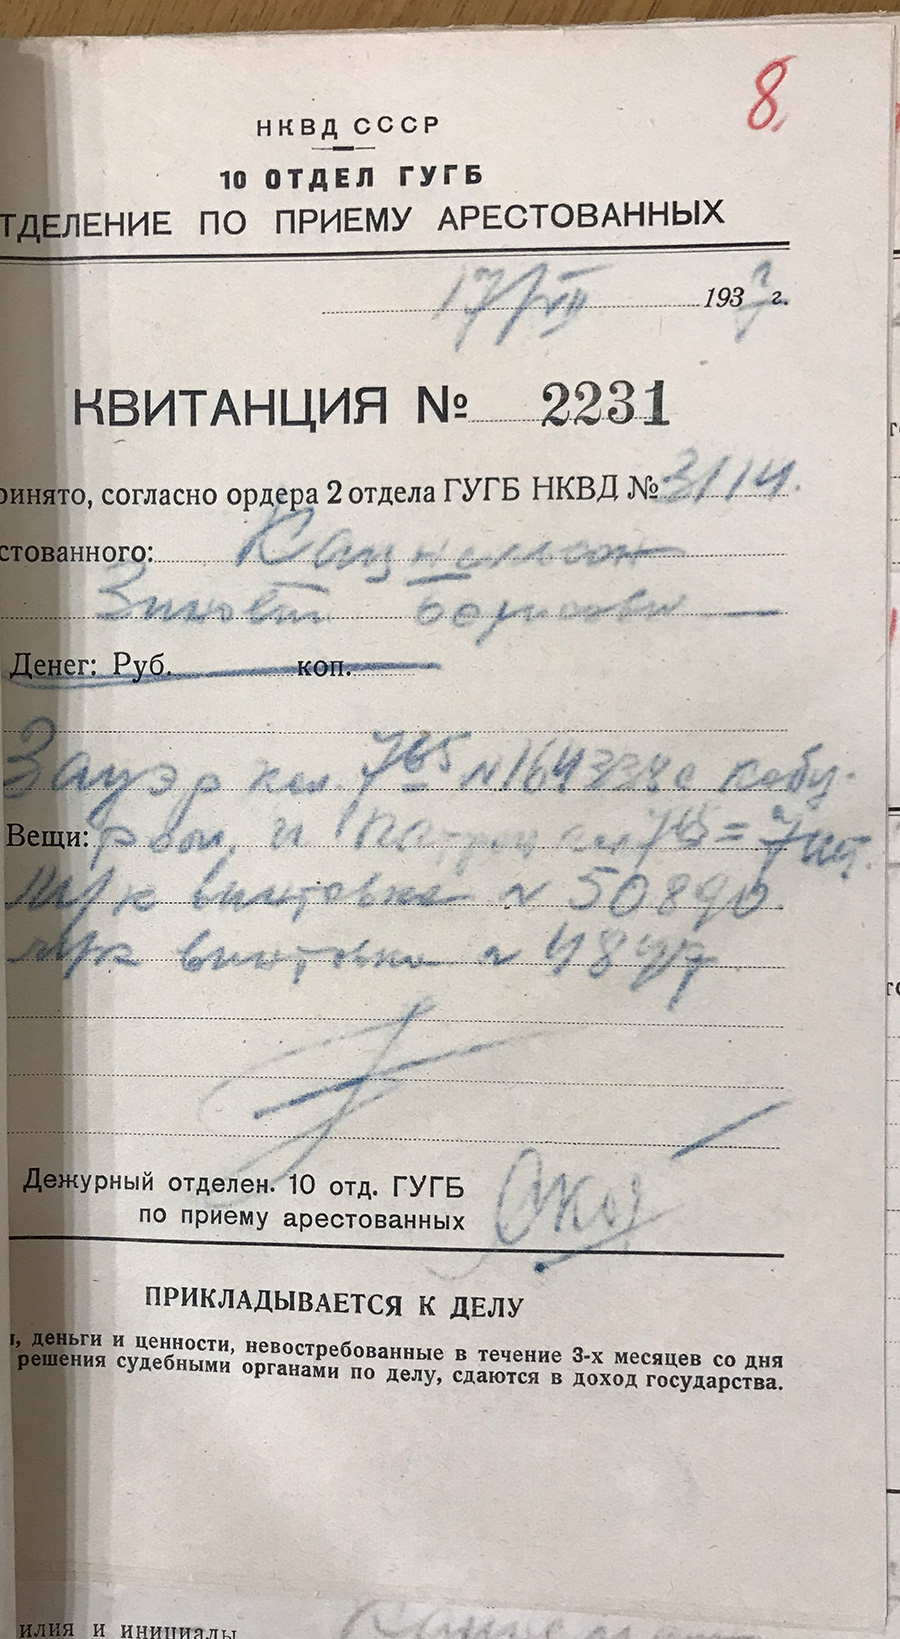 8
НКВД СССР
10 ОТДЕЛ ГУГБ
ТДЕЛЕНИЕ ПО ПРИЕМУ АРЕСТОВАННЫХ
17/VII 1937 г.
КВИТАНЦИЯ № 2231
ринято, согласно ордера 2 отдела ГУГБ НКВД № 3114.
стованного: Кацнельсон
Зиновий Борисович
Денег: Руб. коп.
Зауэр кал. 765 № 164338 с кобу-
Вещи: рой, и патрон 765 = 7 шт.
м/к винтовка № 50890
м/к винтовка №
Дежурный отделен. 10 отд. ГУГБ
по приему арестованных
ПРИКЛАДЫВАЕТСЯ К ДЕЛУ
, деньги и ценности, невостребованные в течение 3-х месяцев со дня
решения судебными органами по делу, сдаются в доход государства.
илия и инициалы